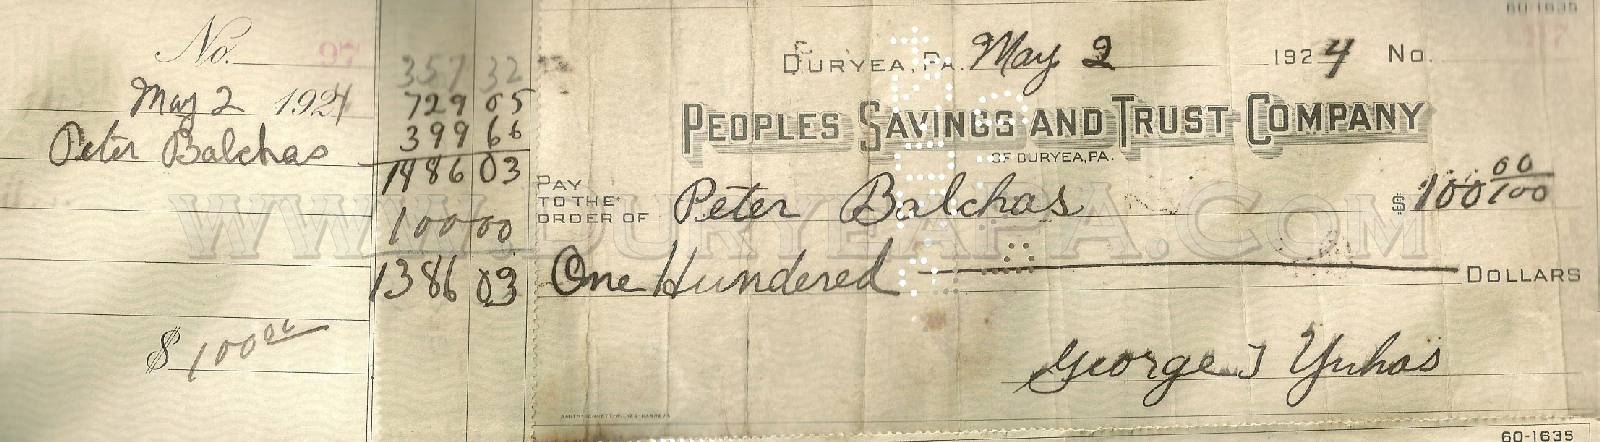 No. 97
May 2 1924
Peter Balchas
$ 100 00
357 32
729 05
399 66
1486 03
100 00
1386 03
60-1635
Duryea, Pa. May 2 1924 No.
Peoples Savings and Trust Company
of Duryea, Pa.
Pay to the order of Peter Balchas $ 100 00/100
One Hundered Dollars
George J Yuhas
www.DuryeaPA.com
60-1635